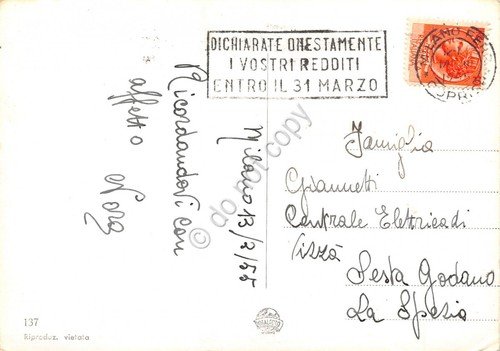 DICHIARATE ONESTAMENTE
I VOSTRI REDDITI
ENTRO IL 31 MARZO
MILANO FE
Milano 13/2/55
Ricordandovi con
affetto
Nora
Famiglia
Giannetti
Centrale Elettrica di
Vizzà
Sesta Godano
La Spezia
137
Riproduz. vietata
do not copy